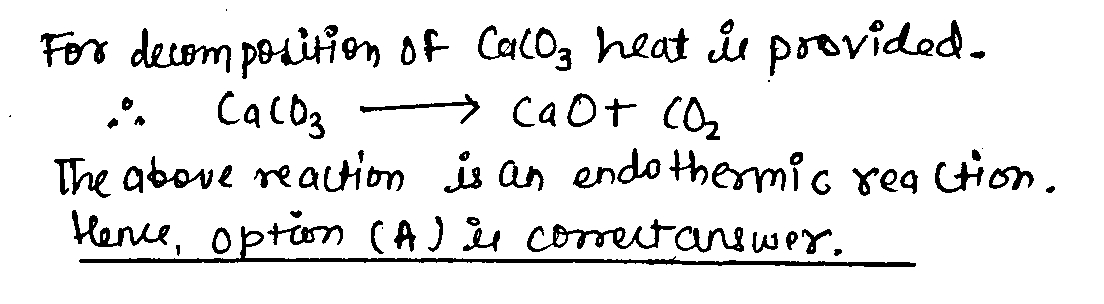 For decomposition of CaCO₃ heat is provided.
∴ CaCO₃ ⟶ CaO+ CO₂
The above reaction is an endothermic reaction.
Hence, option (A) is correct answer.